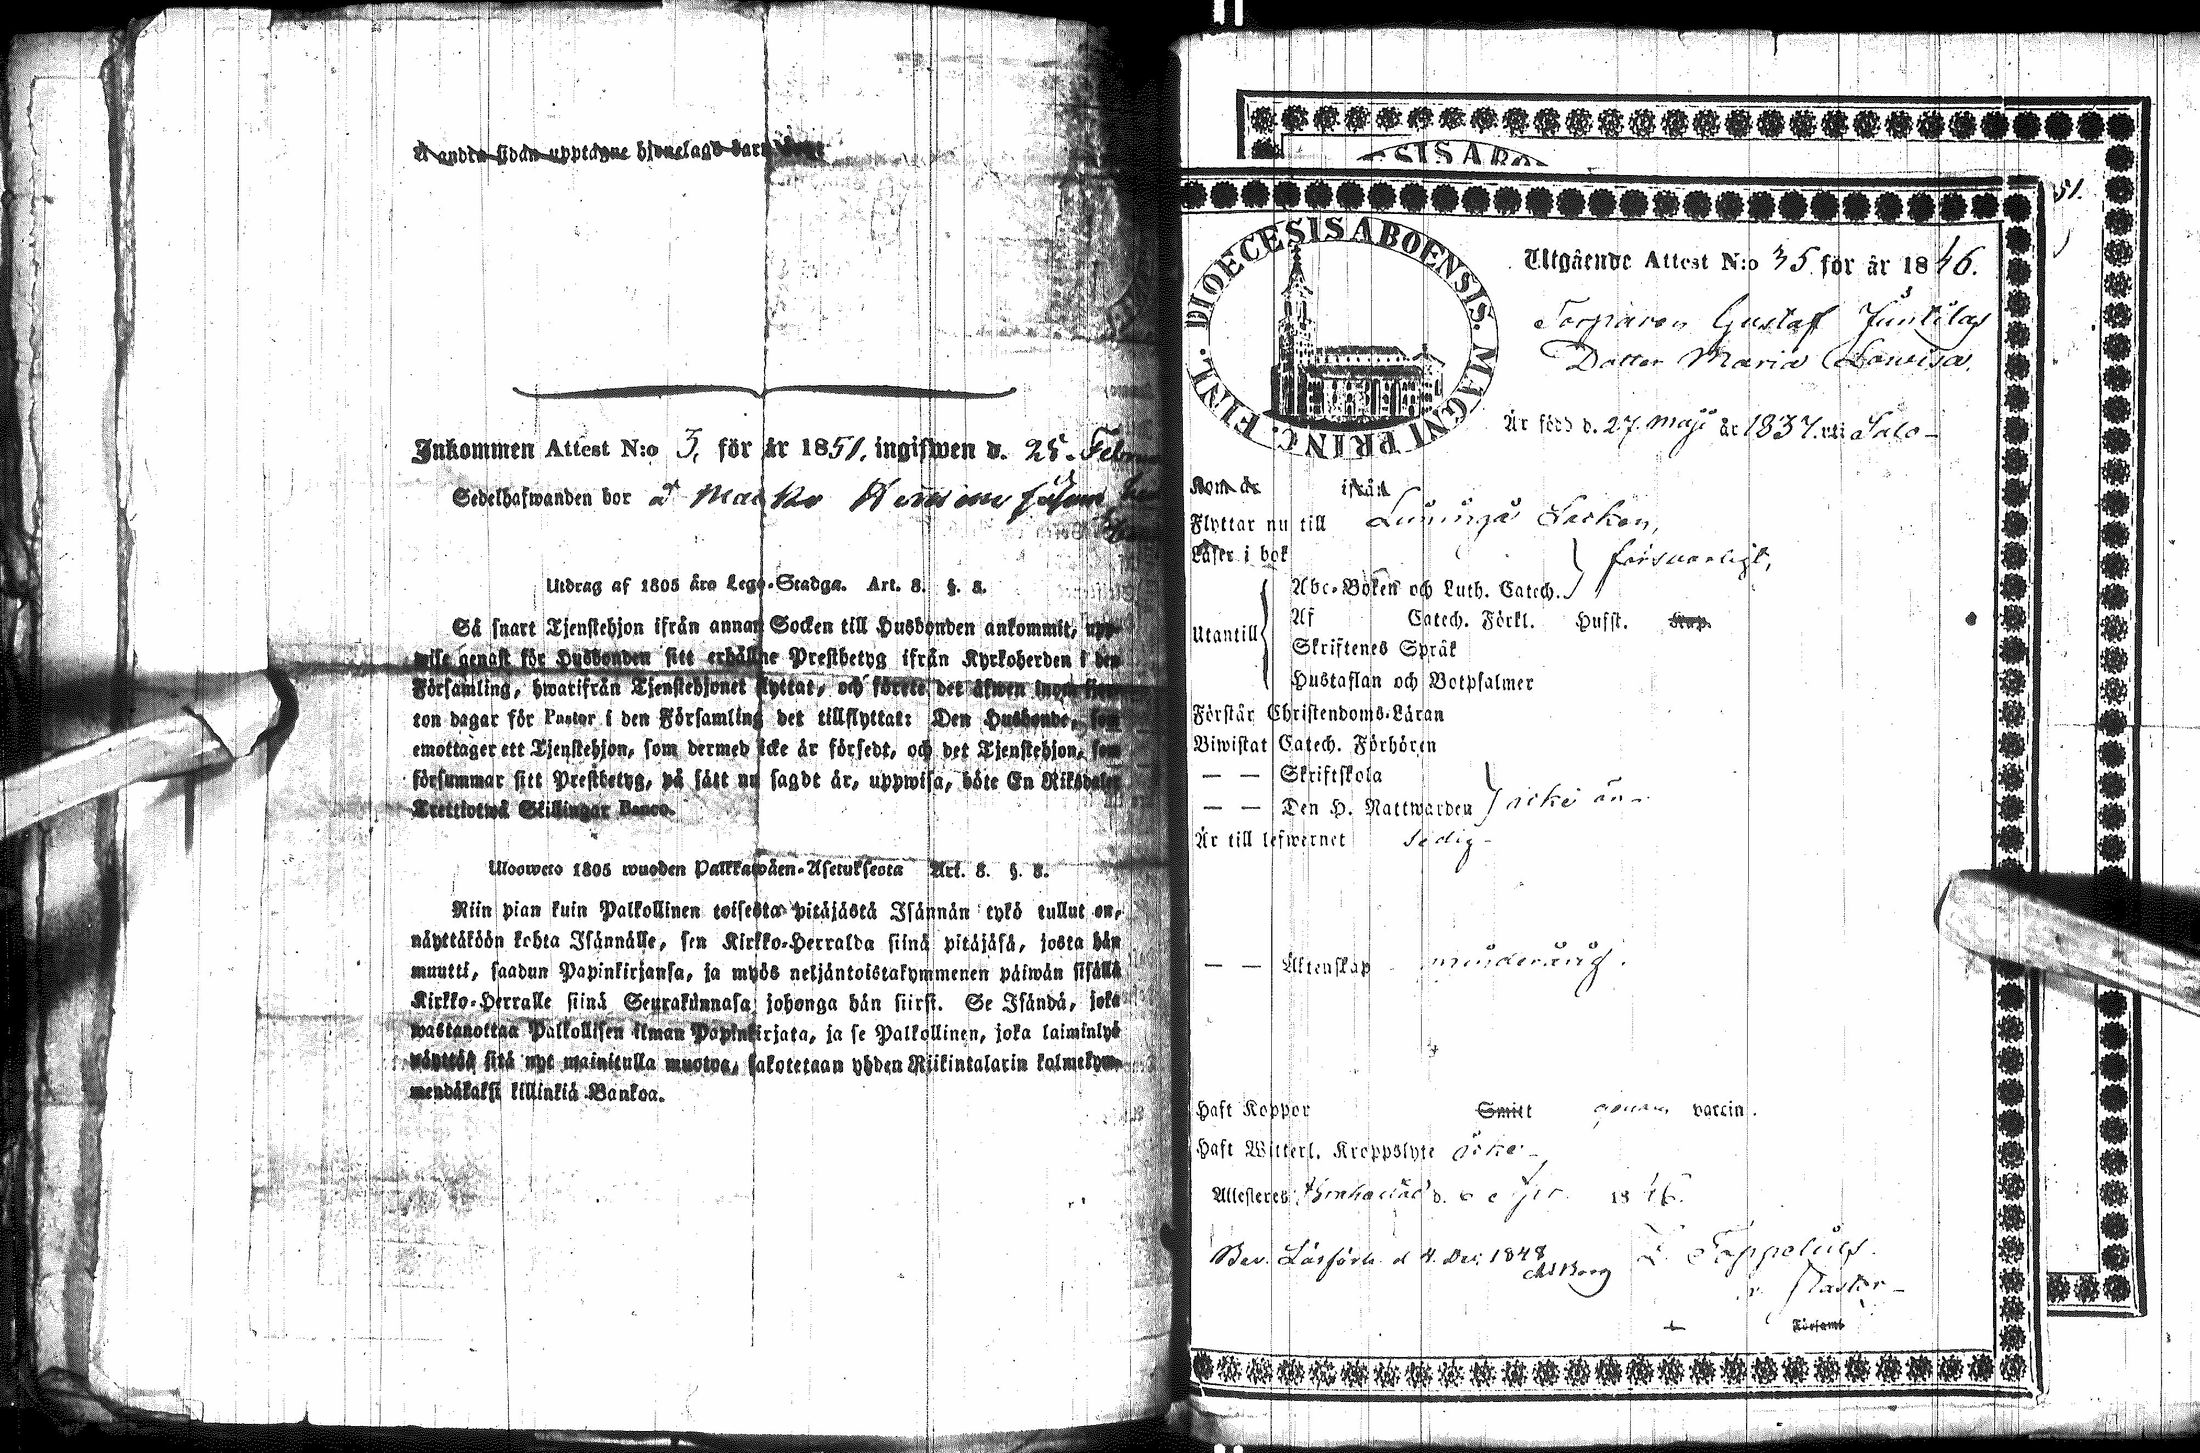 Å andra sidan upptagne hjonelags barn
Inkommen Attest N:o 3, för år 1851, ingifwen d. 25. Febru
Sedelhafwanden bor å
Utdrag af 1805 års Lego-Stadga. Art. 8. §. 8.
Så snart Tjenstehjon ifrån annan Socken till Husbonden ankommit, upp-
wise genast för Husbonden sitt erhållne Prestbetyg ifrån Kyrkoherden i den
Församling, hwarifrån Tjenstehjonet flyttat, och förete det äfwen inom fjor-
ton dagar för Pastor i den Församling det tillflyttat: Den Husbonde, som
emottager ett Tjenstehjon, som dermed icke är försedt, och det Tjenstehjon, som
försummar sitt Prestbetyg, på sätt nu sagdt är, uppwisa, böte En Riksdaler
Trettiotwå Skillingar Banco.
Ulosweto 1805 wuoden Palkkawäen-Asetuksesta Art. 8. §. 8.
Niin pian kuin Palkollinen toisesta pitäjästä Isännän tykö tullut on,
näyttäköön kohta Isännälle, sen Kirkko-Herralda siinä pitäjäsä, josta hän
muutti, saadun Papinkirjansa, ja myös neljäntoistakymmenen päiwän sisällä
Kirkko-Herralle siinä Seurakunnasa johonga hän siirsi. Se Isändä, joka
wastanottaa Palkollisen ilman Papinkirjata, ja se Palkollinen, joka laiminlyö
näyttää sitä nyt mainitulla muotoa, sakotetaan yhden Riikintalarin kolmekym-
mendäkaksi killinkiä Bankoa.
SIS ABO
51.
DIOECESIS ABOENSIS. MAGNI PRINC. FINL.
Utgående Attest N:o 35 för år 1846.
Torparen Gustaf Juntilas
Dotter Maria Lowisa.
Är född d. 27 Maji år 1837. uti Salo-
Kom år ifrån
Flyttar nu till Socken,
Läser i bok försvarligt,
Abc-Boken och Luth. Catech.
Utantill Af Catech. Förkl. Husst. Kap.
Skriftenes Språk
Hustaflan och Botpsalmer
Förstår Christendoms-Läran
Biwistat Catech. Förhören
— — Skriftskola
— — Den H. Nattwarden icke än -
Är till lefwernet sedig -
— — Äktenskap minderårig.
Haft Koppor Smitt genom vaccin.
Haft Witterl. Kroppslyte icke -
Attesteres Brahestad d. 1846.
Bev. Läsförh. d 4. Dec. 1848
Toppelius.
v. Pastor -
Församl